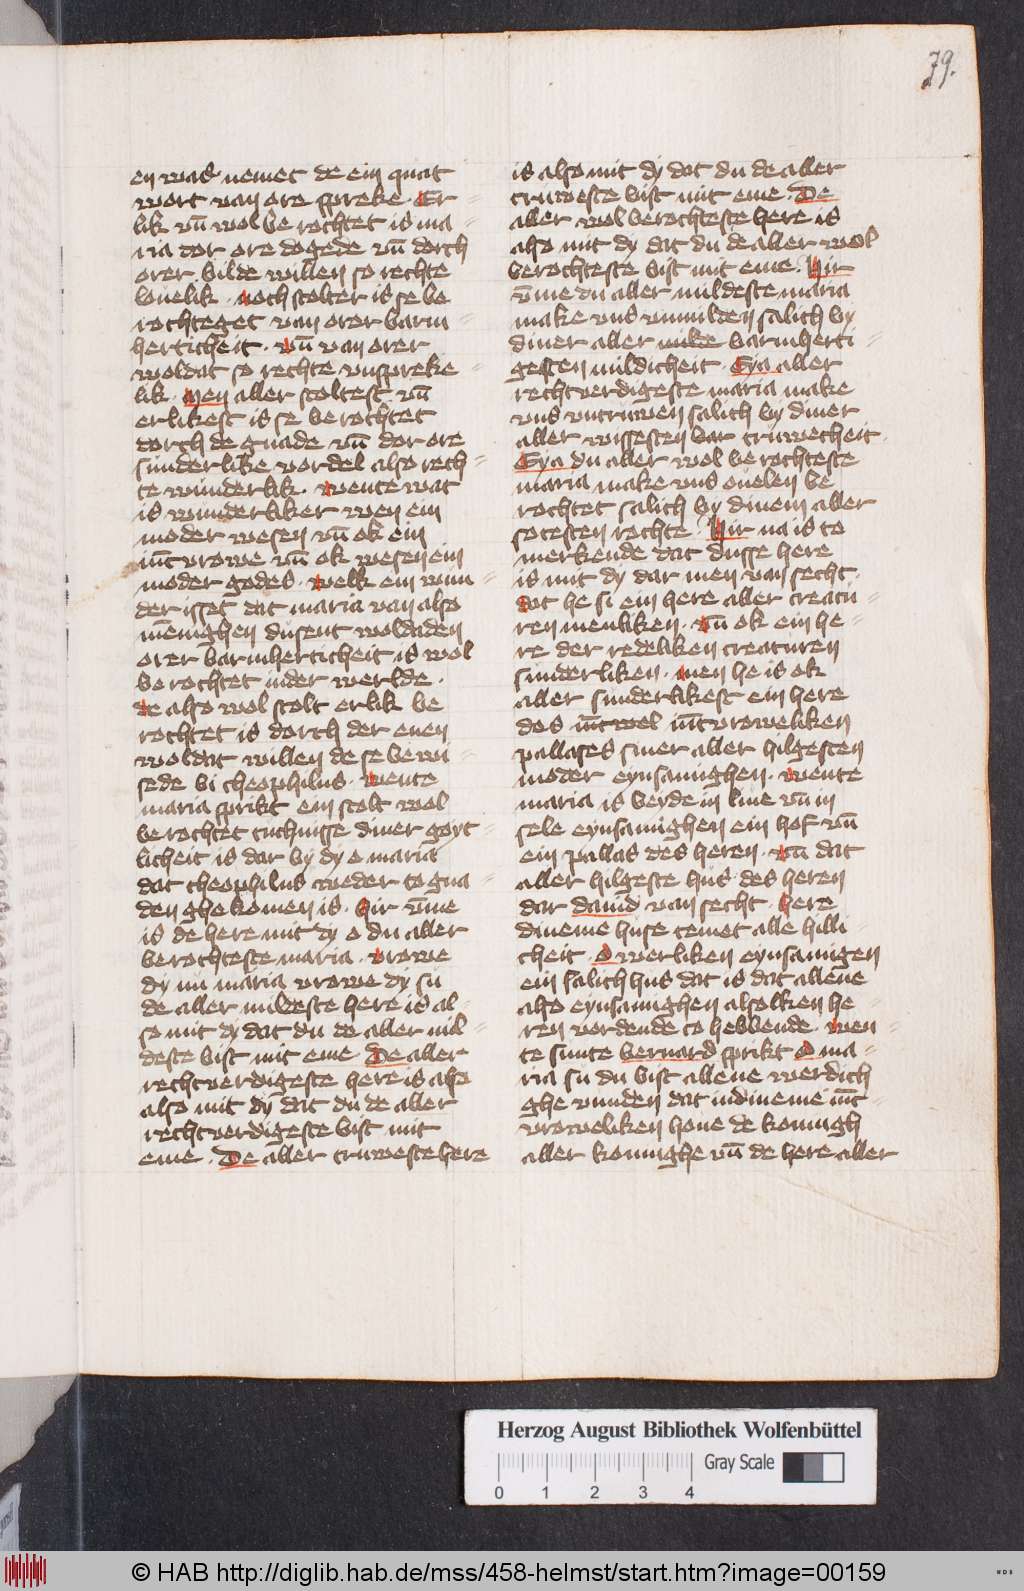 79.
en was nemet de ein quat
wort van ore spreke. Er
lik vn̄ wol be rochtet is ma
ria dor ore dogede vn̄ dorch
orer bilde willen so rechte
louelik. noch stolter is se be
rochteget van orer barm
herticheit. vn̄ van orer
woldat so rechte vnspreke
lik. Men aller stoltest vn̄
erlikest is se berochtet
dorch de gnade vn̄ dor ore
sunderlike vordel also rech
te wunderlik. wente wat
is wunderliker wen ein
moder wesen vn̄ ok ein
iūcvrowe vn̄ ok wesen ein
moder godes. welk ein wun
der isset dat maria van also
mēnighen dusent woldaden
orer barmherticheit is wol
be rochtet inder werlde.
de also wol stolt erlik be
rochtet is dorch der enen
woldat willen de se bewi
sede bi theophilus. wente
maria sprikt ein stolt wol
berochtet tuchnisse diner goyt
licheit is dar by dy o maria
dat theophilus weder to gna
den ghekomen is. Hir vm̄e
is de here mit dy o du aller
berochteste maria. vrowe
dy nu maria vrowe dy su
de aller mildeste here is al
so mit dy dat du de aller mil
deste bist mit eme. De aller
rechtverdigeste here is also
also mit dy dat du de aller
rechtverdigeste bist mit
eme. De aller truweste here
is also mit dy dat du de aller
truweste bist mit eme. De
aller wol berochteste here is
also mit dy dat du de aller wol
berochteste bist mit eme. Hir
vm̄e du aller mildeste maria
make vns vnmilden salich by
diner aller milde barmherti
gesten mildicheit. Eya aller
rechtverdigeste maria make
vns vntruwen salich by diner
aller wissesten bar truwecheit.
Eya du aller wol berochteste
maria make vns ouelen be
rochtet salich by dinem aller
sotesten rochte. Hir na is to
merkende dat dusse here
is mit dy dar men van secht.
dat he si ein here aller creatu
ren menliken. vn̄ ok ein he
re der redeliken creaturen
sunderliken. men he is ok
aller sunderlikest ein here
des iūcwel iūcvroweliken
pallases siner aller hilgesten
moder eynsamighen. wente
maria is beyde in liue vn̄ in
sele eynsamighen ein hof vn̄
ein pallas des heren. vn̄ dat
aller hilgeste hus des heren
dar dauid van secht. here
dineme huse temet alle hilli
cheit. O werliken eynsamigen
ein salich hus dat is dat allene
also eynsamighen alsolken he
ren vordende to hebbende. wen
te sunte bernard sprikt O ma
ria su du bist allene werdich
ghe vunden dat indineme iūc
vroweliken houe de konnigh
aller konnighe vn̄ de here aller
Herzog August Bibliothek Wolfenbüttel
Gray Scale
0 1 2 3 4
© HAB http://diglib.hab.de/mss/458-helmst/start.htm?image=00159